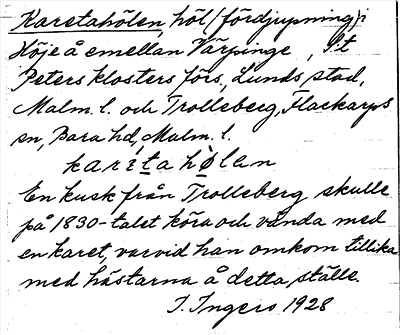 Karetahölen, höl (fördjupning) i
Höje å emellan Värpinge, S:t
Peters klosters förs., Lunds stad,
Malm. l. och Trolleberg, Flackarps
sn, Bara hd, Malm. l.
karitahølan
En kusk från Trolleberg skulle
på 1830-talet köra och vända med
en karet, varvid han omkom tillika
med hästarna å detta ställe.
I. Ingers 1928